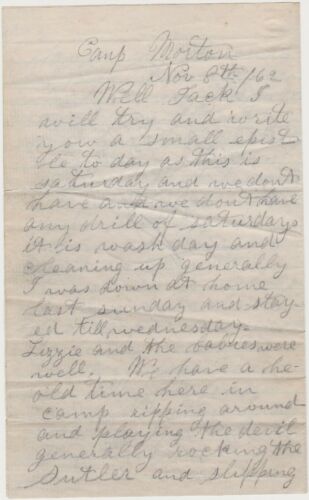 Camp Morton
Nov 8th /62
Well Jack I
will try and write
yow a small epist
le to day as this is
saturday and we dont
have and we dont have
any drill of saturdays
it is wash day and
cleaning up generally
I was down at home
last sunday and stay
ed till wednesday.
Lizzie and the babies were
well. We have a he
old time here in
camp ripping around
and playing the devil
generally rocking the
Sutler and slipping